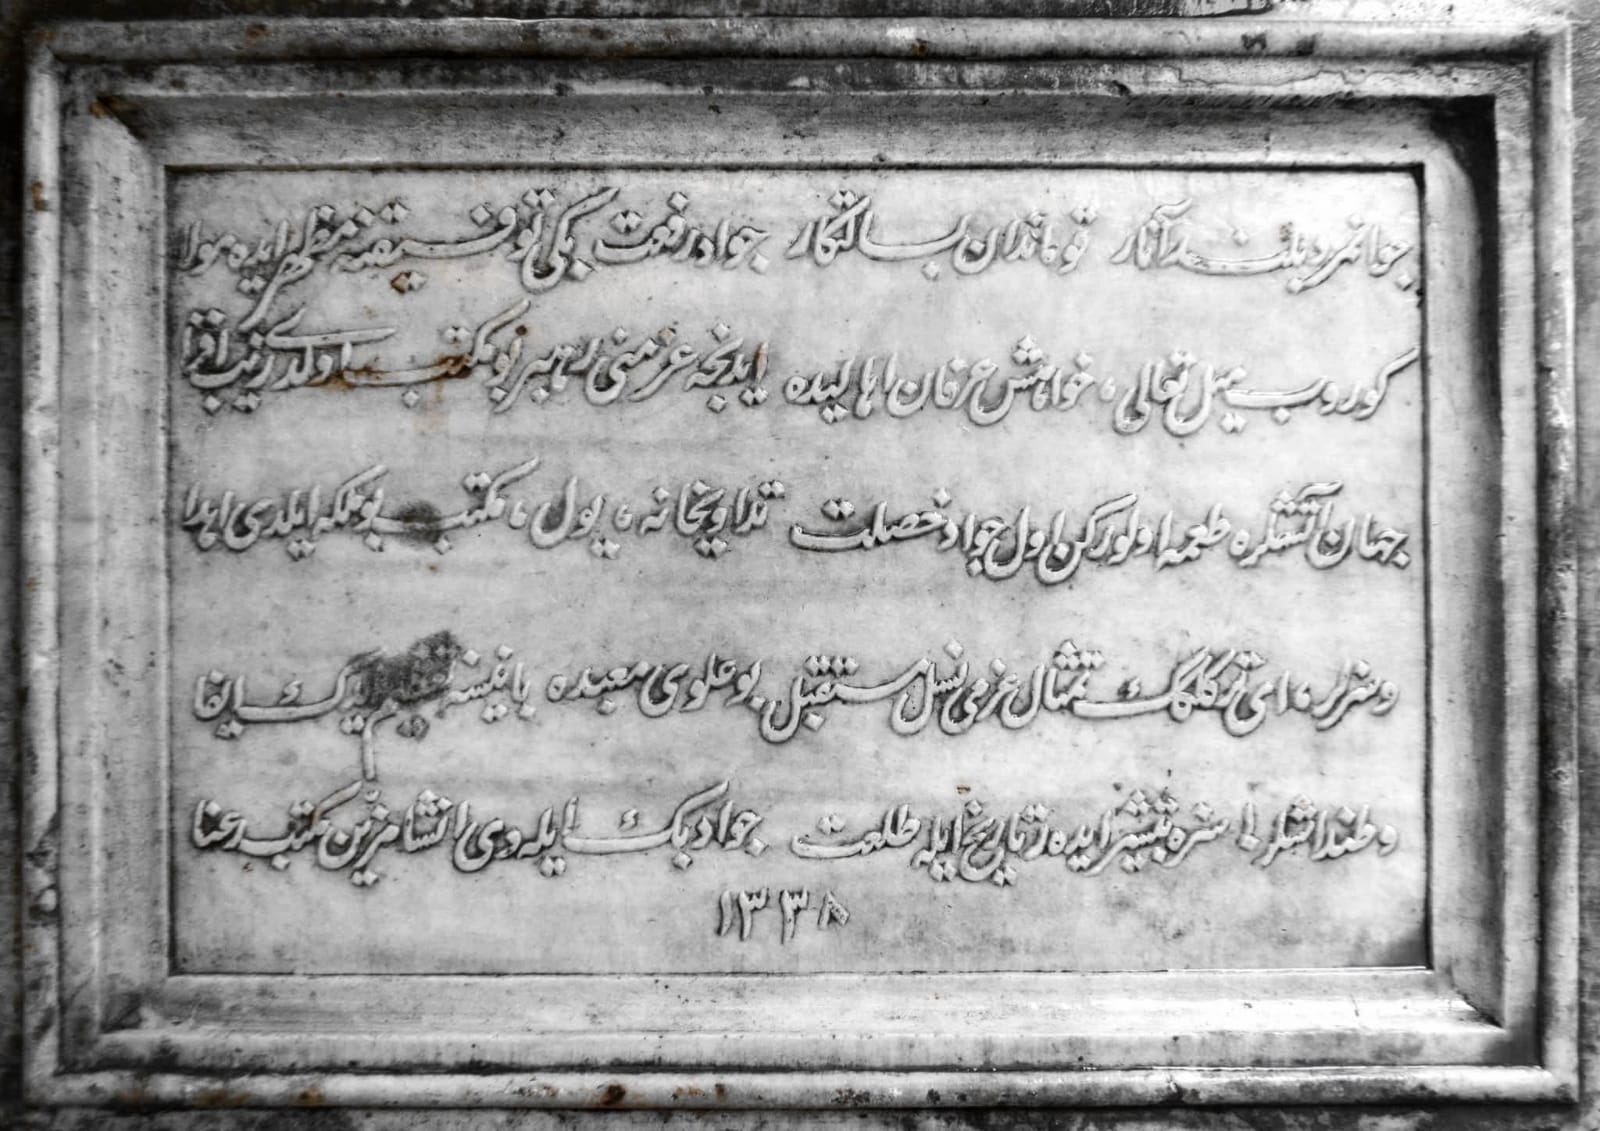 جوانمرد بلند آثار قوماندان بسالتكار جواد رفعت بكی توفیقنه مظهر ایده مولا
كوروب میل تعالی، خواهش عرفان اهالیده ایدنجه عزمنی رهبر بو مكتب اولدی زینت افزا
جهان آتشلره طعمه اولوركن اول جواد خصلت تداویخانه، یول، مكتب بو ملكه ایلدی اهدا
وسزلر، ای تركلك تمثال عزمی نسل مستقبل بو علوی معبده بیك ایفا
وطنداشلر! سزه تبشیر ایده ر تاریخ ایله طلعت جواد بك ایله دی انشا مزین مكتب رعنا
١٣٣٨